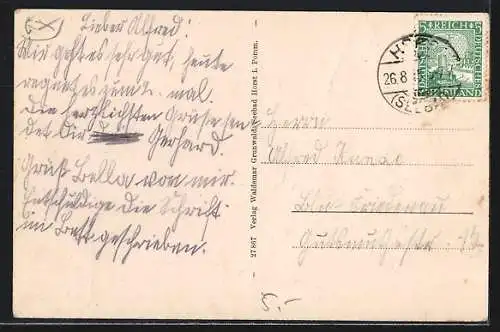 Lieber Alfred!
Mir geht es sehr gut, heute
regnet es zum 1. mal.
Die herzlichsten Grüße sen
det Dir Gerhard.
Grüß Bella von mir.
Entschuldige die Schrift
im Bett geschrieben.
27867 Verlag Waldemar Grunwald, Seebad Horst i. Pomm.
DEUTSCHES REICH
5 5
RHEINLAND
26.8.
(SEEB
Herrn
Alfred
Bln-Friedenau
5.-